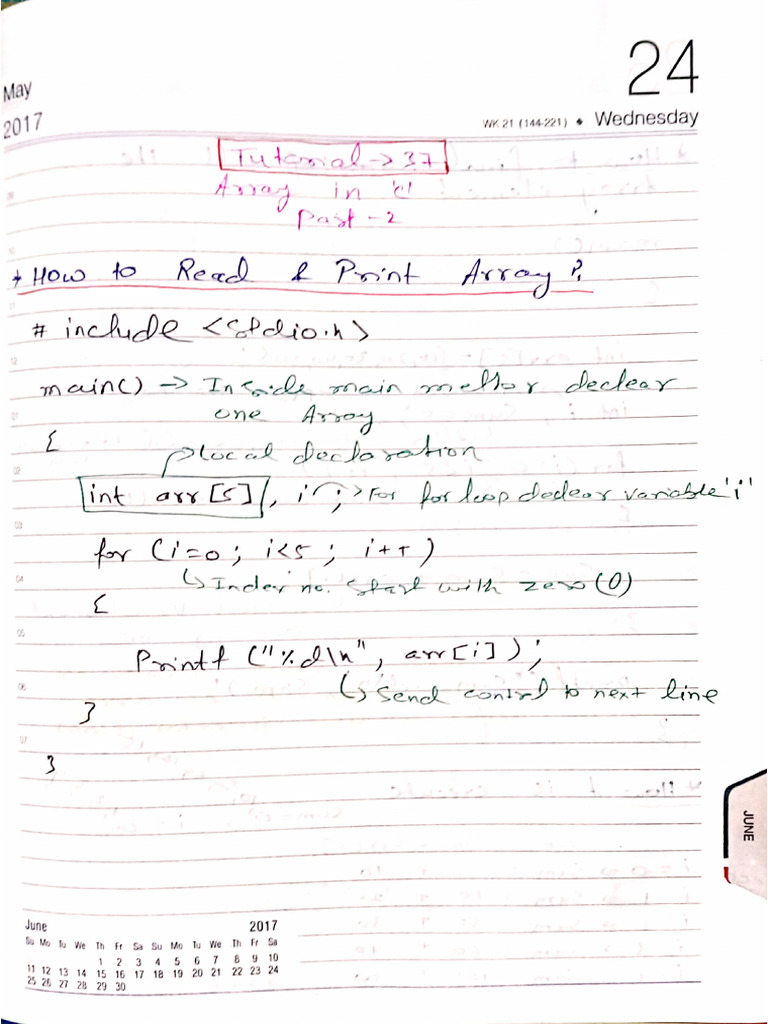 May
2017
24
WK 21 (144-221) ◆ Wednesday
Tutorial → 37
Array in 'c'
Part - 2
* How to Read & Print Array?:
# include <stdio.h>
main() → Inside main declear
one Array
{
local declaration
int arr[5], i ; → For for loop declear variable 'i'
for (i=0 ; i<5 ; i++)
↳ Index no. start with zero (0)
{
Printf ("%d\n", arr[i]);
↳ Send control to next line
}
}
JUNE
June 2017
Su Mo Tu We Th Fr Sa Su Mo Tu We Th Fr Sa
1 2 3 4 5 6 7 8 9 10
11 12 13 14 15 16 17 18 19 20 21 22 23 24
25 26 27 28 29 30